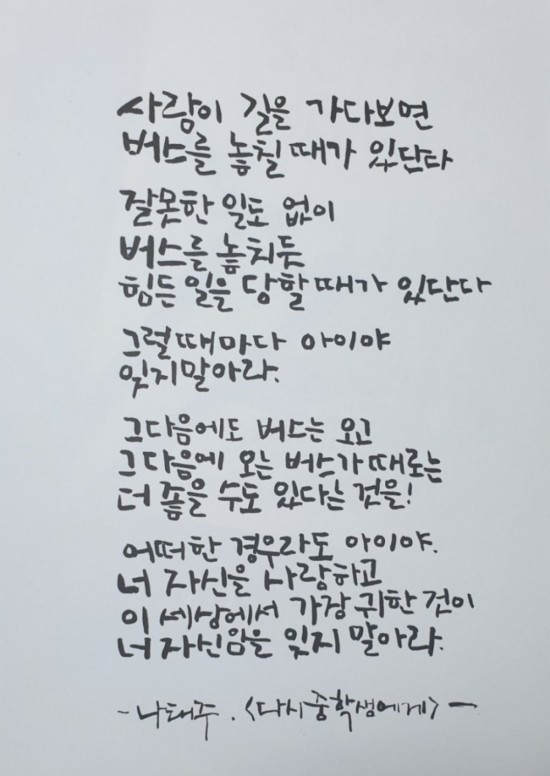 사람이 길을 가다보면
버스를 놓칠 때가 있단다
잘못한 일도 없이
버스를 놓치듯
힘든 일을 당할 때가 있단다
그럴때마다 아이야
잊지말아라.
그다음에도 버스는 오고
그다음에 오는 버스가 때로는
더 좋을 수도 있다는 것을!
어떠한 경우라도 아이야.
너 자신을 사랑하고
이 세상에서 가장 귀한 것이
너 자신임을 잊지 말아라.
- 나태주 . <다시 중학생에게> -